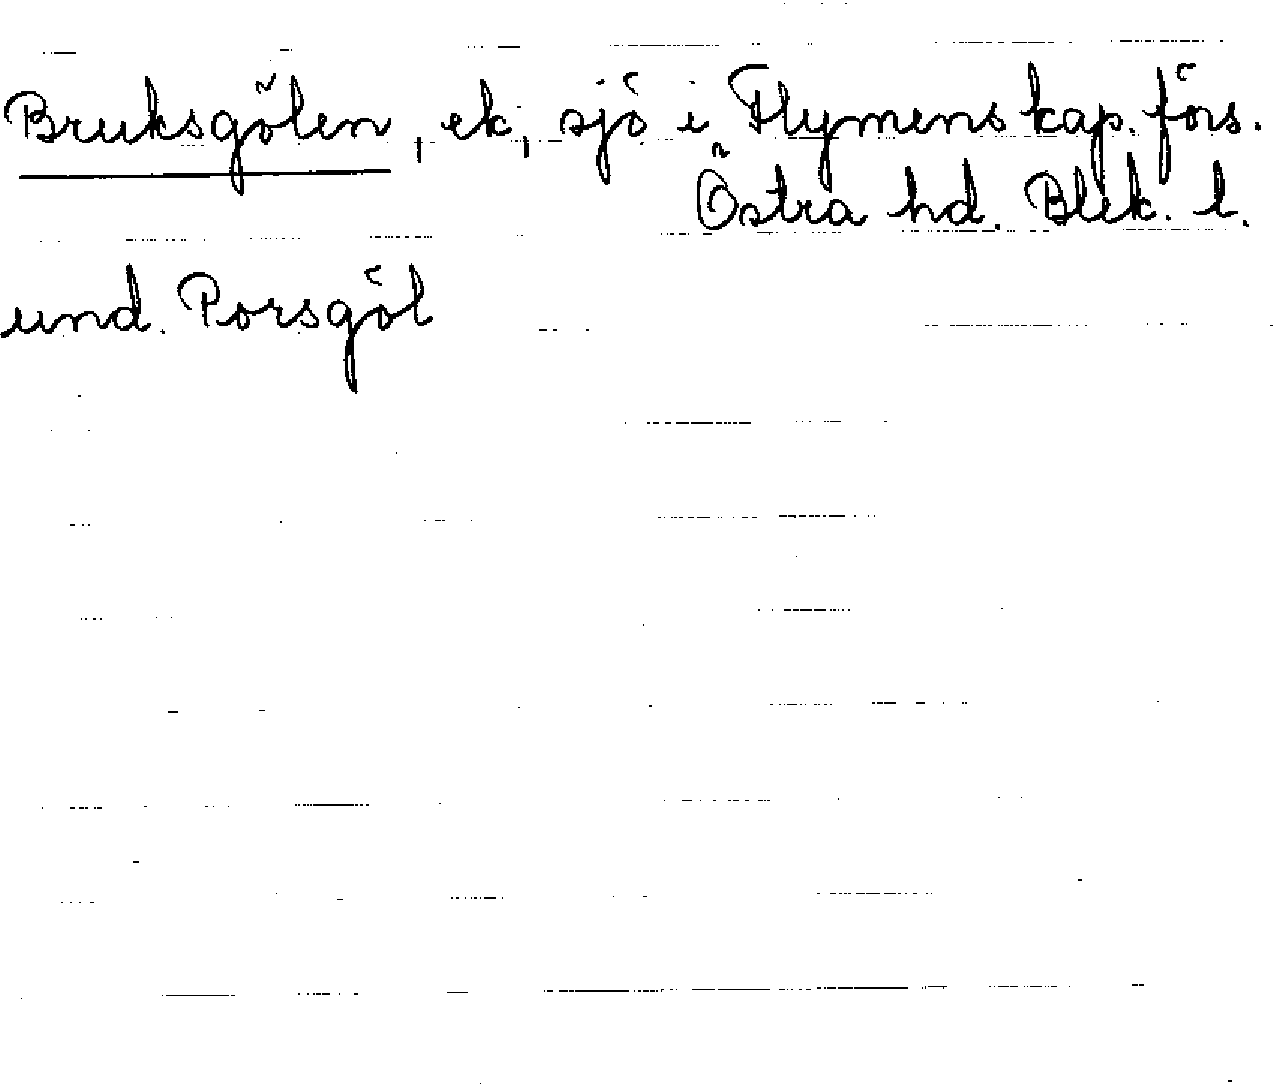 Bruksgölen, ek, sjö i Flymens kap. förs.
Östra hd. Blek. l.
und. Porsgöl